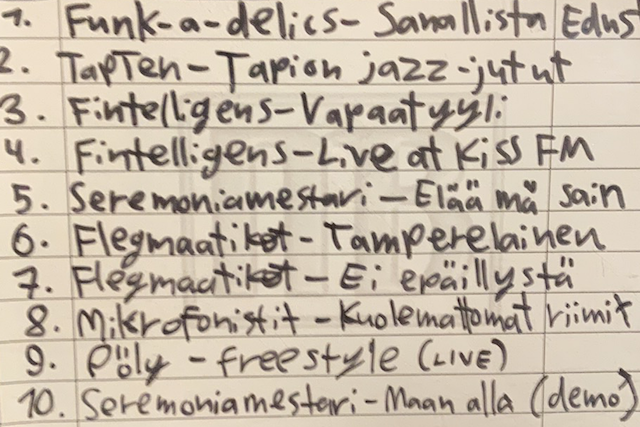 1. Funk-a-delics- Sanallista Edus
2. TapTen - Tapion jazz-jutut
3. Fintelligens-Vapaatyyli
4. Fintelligens-Live at Kiss FM
5. Seremoniamestari - Elää mä sain
6. Flegmaatikot - Tamperelainen
7. Flegmaatikot - Ei epäillystä
8. Mikrofonistit - Kuolemattomat riimit
9. Pöly - freestyle (LIVE)
10. Seremoniamestari - Maan alla (demo)